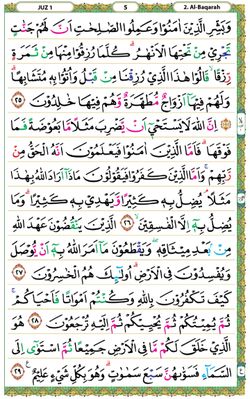 JUZ 1 5 2. Al-Baqarah
وَبَشِّرِ الَّذِيْنَ اٰمَنُوْا وَعَمِلُوا الصّٰلِحٰتِ اَنَّ لَهُمْ جَنّٰتٍ
تَجْرِيْ مِنْ تَحْتِهَا الْاَنْهٰرُ ۗ كُلَّمَا رُزِقُوْا مِنْهَا مِنْ ثَمَرَةٍ
رِّزْقًا ۙ قَالُوْا هٰذَا الَّذِيْ رُزِقْنَا مِنْ قَبْلُ وَاُتُوْا بِهٖ مُتَشَابِهًا ۗ
وَلَهُمْ فِيْهَآ اَزْوَاجٌ مُّطَهَّرَةٌ وَّهُمْ فِيْهَا خٰلِدُوْنَ ٢٥
اِنَّ اللّٰهَ لَا يَسْتَحْيٖٓ اَنْ يَّضْرِبَ مَثَلًا مَّا بَعُوْضَةً فَمَا
فَوْقَهَا ۗ فَاَمَّا الَّذِيْنَ اٰمَنُوْا فَيَعْلَمُوْنَ اَنَّهُ الْحَقُّ مِنْ
رَّبِّهِمْ ۚ وَاَمَّا الَّذِيْنَ كَفَرُوْا فَيَقُوْلُوْنَ مَاذَآ اَرَادَ اللّٰهُ بِهٰذَا
مَثَلًا ۘ يُضِلُّ بِهٖ كَثِيْرًا وَّيَهْدِيْ بِهٖ كَثِيْرًا ۗ وَمَا
يُضِلُّ بِهٖٓ اِلَّا الْفٰسِقِيْنَ ۙ ٢٦ الَّذِيْنَ يَنْقُضُوْنَ عَهْدَ اللّٰهِ
مِنْۢ بَعْدِ مِيْثَاقِهٖ ۖ وَيَقْطَعُوْنَ مَآ اَمَرَ اللّٰهُ بِهٖٓ اَنْ يُّوْصَلَ
وَيُفْسِدُوْنَ فِى الْاَرْضِ ۗ اُولٰۤىِٕكَ هُمُ الْخٰسِرُوْنَ ٢٧
كَيْفَ تَكْفُرُوْنَ بِاللّٰهِ وَكُنْتُمْ اَمْوَاتًا فَاَحْيَاكُمْ ۚ
ثُمَّ يُمِيْتُكُمْ ثُمَّ يُحْيِيْكُمْ ثُمَّ اِلَيْهِ تُرْجَعُوْنَ ٢٨ هُوَ
الَّذِيْ خَلَقَ لَكُمْ مَّا فِى الْاَرْضِ جَمِيْعًا ثُمَّ اسْتَوٰٓى اِلَى
السَّمَاۤءِ فَسَوّٰىهُنَّ سَبْعَ سَمٰوٰتٍ ۗ وَهُوَ بِكُلِّ شَيْءٍ عَلِيْمٌ ٢٩